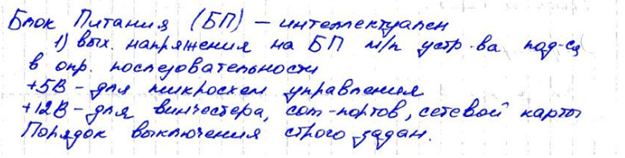 Блок Питания (БП) – интеллектуален
1) вых. напряжения на БП м/п устр-ва под-ся
в опр. последовательности
+5В – для микросхем управления
+12В – для винчестера, com-портов, сетевой карты
Порядок выключения строго задан.